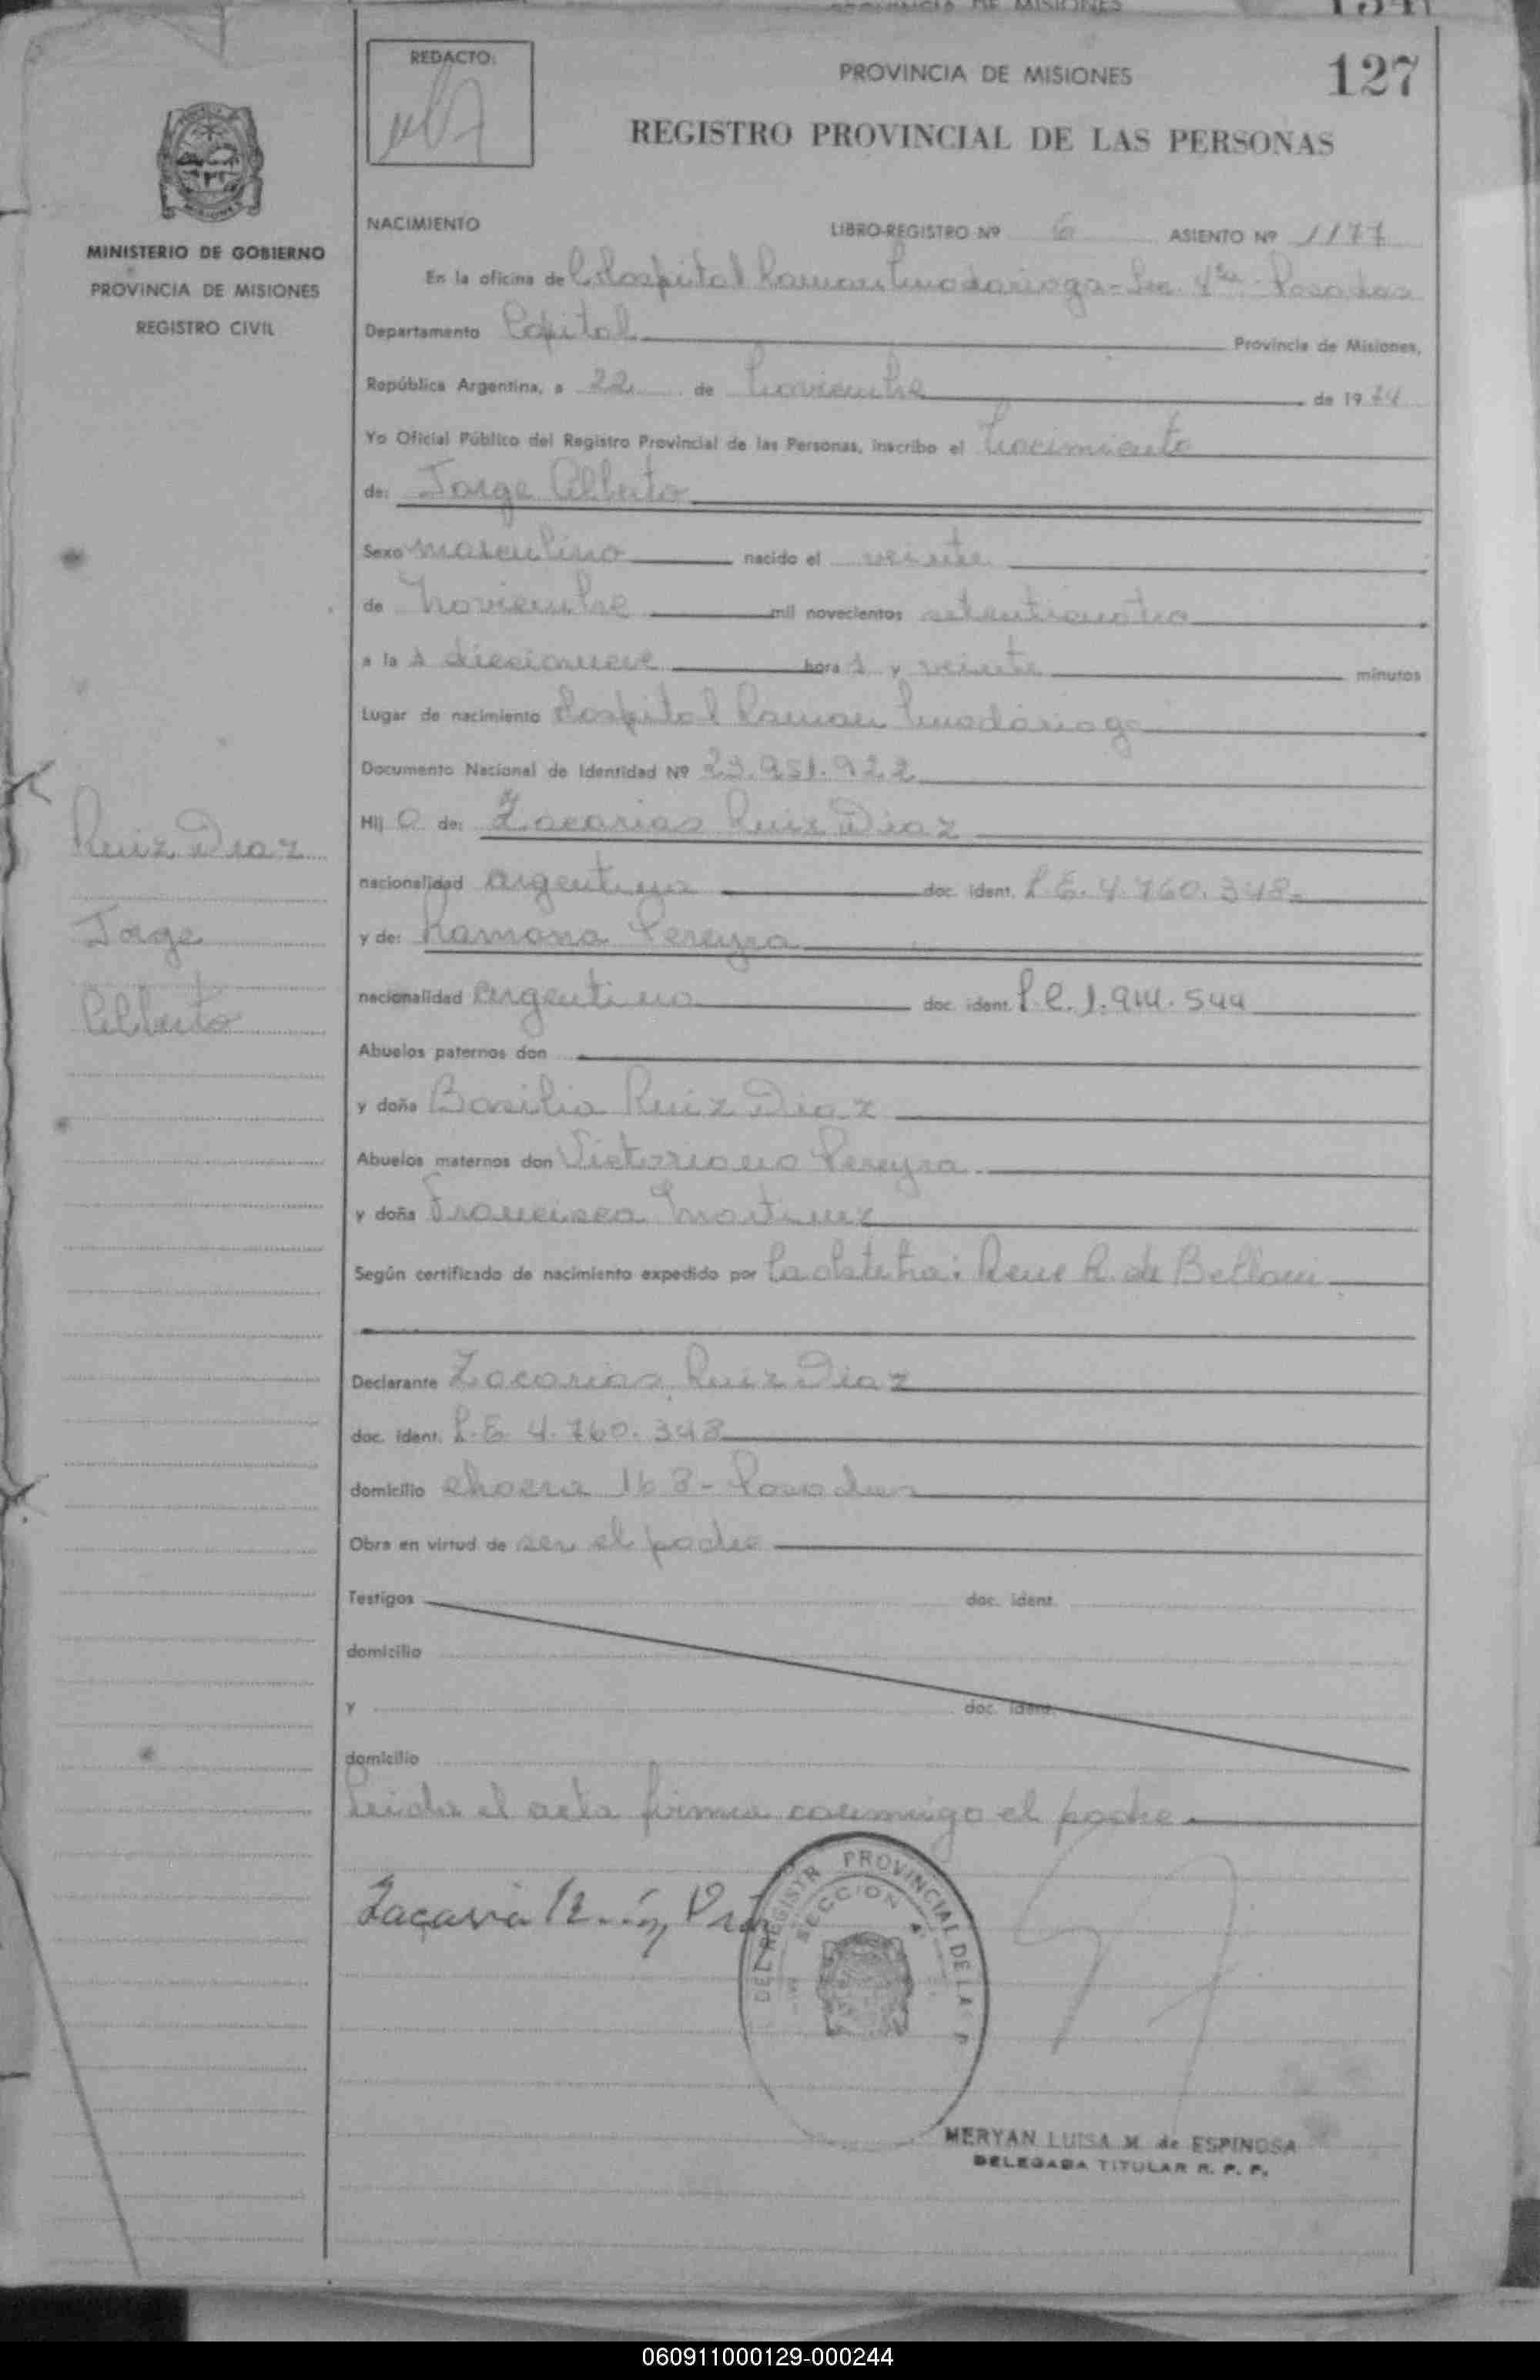 PROVINCIA DE MISIONES
REDACTO:
PROVINCIA DE MISIONES
127
REGISTRO PROVINCIAL DE LAS PERSONAS
MINISTERIO DE GOBIERNO
PROVINCIA DE MISIONES
REGISTRO CIVIL
NACIMIENTO LIBRO-REGISTRO Nº 6 ASIENTO Nº 1177
En la oficina de Hospital Ramon Madariaga - Sec. 4ta - Posadas
Departamento Capital Provincia de Misiones,
República Argentina, a 22 de Noviembre de 1974
Yo Oficial Público del Registro Provincial de las Personas, inscribo el Nacimiento
de: Jorge Alberto
Sexo masculino nacido el veinte
de Noviembre mil novecientos setenticuatro
a la s diecinueve hora s y veinte minutos
Lugar de nacimiento Hospital Ramon Madariaga
Documento Nacional de Identidad Nº 23.951.922
Hij o de: Zacarias Ruiz Diaz
nacionalidad argentina doc. ident. L.E. 4.760.348-
y de: Ramona Pereyra
nacionalidad argentina doc. ident. L.C. 1.914.544
Abuelos paternos don
y doña Basilia Ruiz Diaz
Abuelos maternos don Victoriano Pereyra
y doña Francisca Martinez
Según certificado de nacimiento expedido por la obstetra: Rene R. de Belloni
Declarante Zacarias Ruiz Diaz
doc. ident. L.E. 4.760.348
domicilio chacra 168 - Posadas
Obra en virtud de ser el padre
Testigos doc. ident.
domicilio
y doc. ident.
domicilio
Leida el acta firma conmigo el padre
Ruiz Diaz
Jorge
Alberto
Zacaria Ruiz Diaz
DEL REGISTR PROVINCIAL DE LA P
SECCION 4
MERYAN LUISA M. de ESPINOSA
DELEGADA TITULAR R. P. P.
060911000129-000244